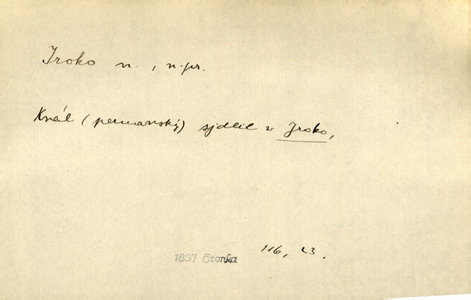 Jroko n., n.pr.
Král (peruanský) sjdlil v Jroko,
1837 Hronka 116, 23.